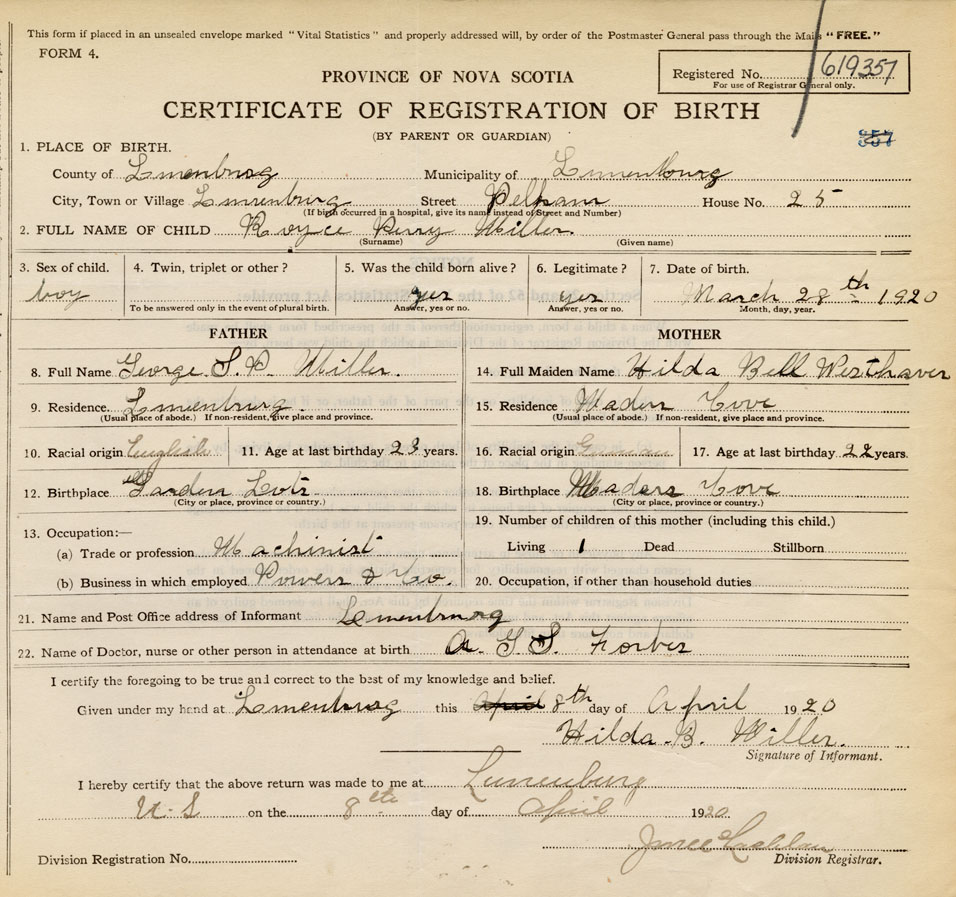 This form if placed in an unsealed envelope marked "Vital Statistics" and properly addressed will, by order of the Postmaster General pass through the Mails "FREE."
FORM 4.
PROVINCE OF NOVA SCOTIA
Registered No. 619357
For use of Registrar General only.
CERTIFICATE OF REGISTRATION OF BIRTH
(BY PARENT OR GUARDIAN)
357
1. PLACE OF BIRTH.
County of Lunenburg Municipality of Lunenbourg
City, Town or Village Lunenburg Street Pelham House No. 25
(If birth occurred in a hospital, give its name instead of Street and Number)
2. FULL NAME OF CHILD Royce Perry Miller.
(Surname) (Given name)
3. Sex of child. 4. Twin, triplet or other? 5. Was the child born alive? 6. Legitimate? 7. Date of birth.
boy yes yes March 28th 1920
To be answered only in the event of plural birth. Answer, yes or no. Answer, yes or no. Month, day, year.
FATHER MOTHER
8. Full Name George S. P. Miller. 14. Full Maiden Name Hilda Bell Westhaver
9. Residence Lunenburg. 15. Residence Maders Cove
(Usual place of abode.) If non-resident, give place and province. (Usual place of abode.) If non-resident, give place and province.
10. Racial origin English 11. Age at last birthday 23 years. 16. Racial origin German 17. Age at last birthday 22 years.
12. Birthplace Garden Lots 18. Birthplace Maders Cove
(City or place, province or country.) (City or place, province or country.)
13. Occupation:— 19. Number of children of this mother (including this child.)
(a) Trade or profession Machinist Living 1 Dead Stillborn
(b) Business in which employed Powers & Co. 20. Occupation, if other than household duties
21. Name and Post Office address of Informant Lunenburg
22. Name of Doctor, nurse or other person in attendance at birth A. G S. Forbes
I certify the foregoing to be true and correct to the best of my knowledge and belief.
Given under my hand at Lunenburg this April 8th day of April 1920
Hilda. B. Miller.
Signature of Informant.
I hereby certify that the above return was made to me at Lunenburg
N. S on the 8th day of April 1920
Division Registration No. Division Registrar.